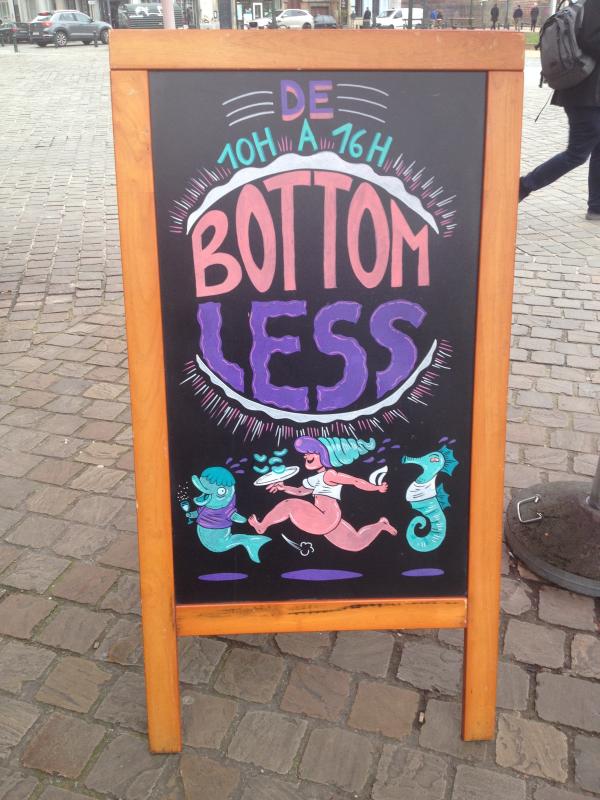 DE
10H A 16H
BOTTOM
LESS